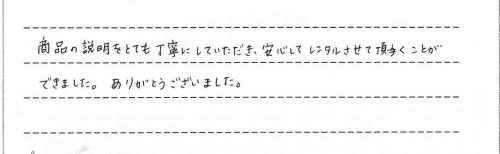 商品の説明をとても丁寧にしていただき、安心してレンタルさせて頂くことが
できました。 ありがとうございました。